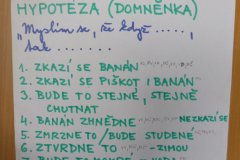 HYPOTÉZA (DOMNĚNKA)
„Myslím se, že když .....,
tak ........
1. ZKAZÍ SE BANÁN
2. ZKAZÍ SE PIŠKOT I BANÁN
3. BUDE TO STEJNÉ, STEJNĚ
CHUTNAT
4. BANÁN ZHNĚDNE NEZKAZÍ SE
5. ZMRZNE TO / BUDE STUDENÉ
6. ZTVRDNE TO - ZIMOU